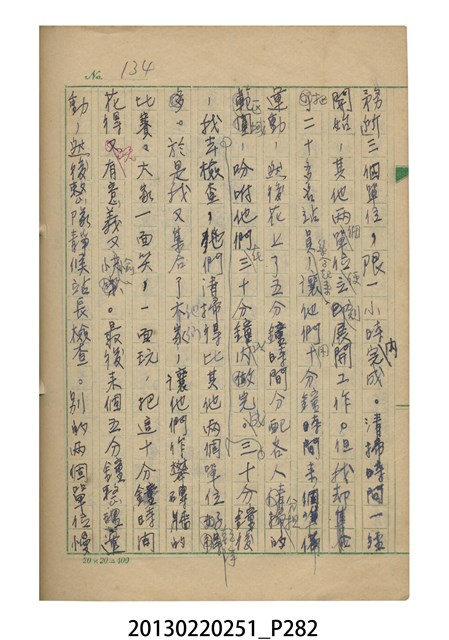 No. 134
務班三個單位，限一小時內完成。清掃時間一經
開始，其他兩單位立即展開工作。但我却集合
了二十多名站員，讓他們十分鐘時間來個準備
運動，然後花上了五分鐘時間分配各人清掃的
範圍，吩咐他們三十分鐘內做完。三十分鐘後
，我去檢查，他們清掃得比其他兩個單位好得
多。於是我又集合了大家，讓他們作舉磚頭的
比賽。大家一面笑，一面玩，把這十分鐘時間
花得又有意義又愉快。最後來個五分鐘整理運
動，然後整隊靜候站長檢查。別的兩個單位慢
20×20=400
20130220251_P282